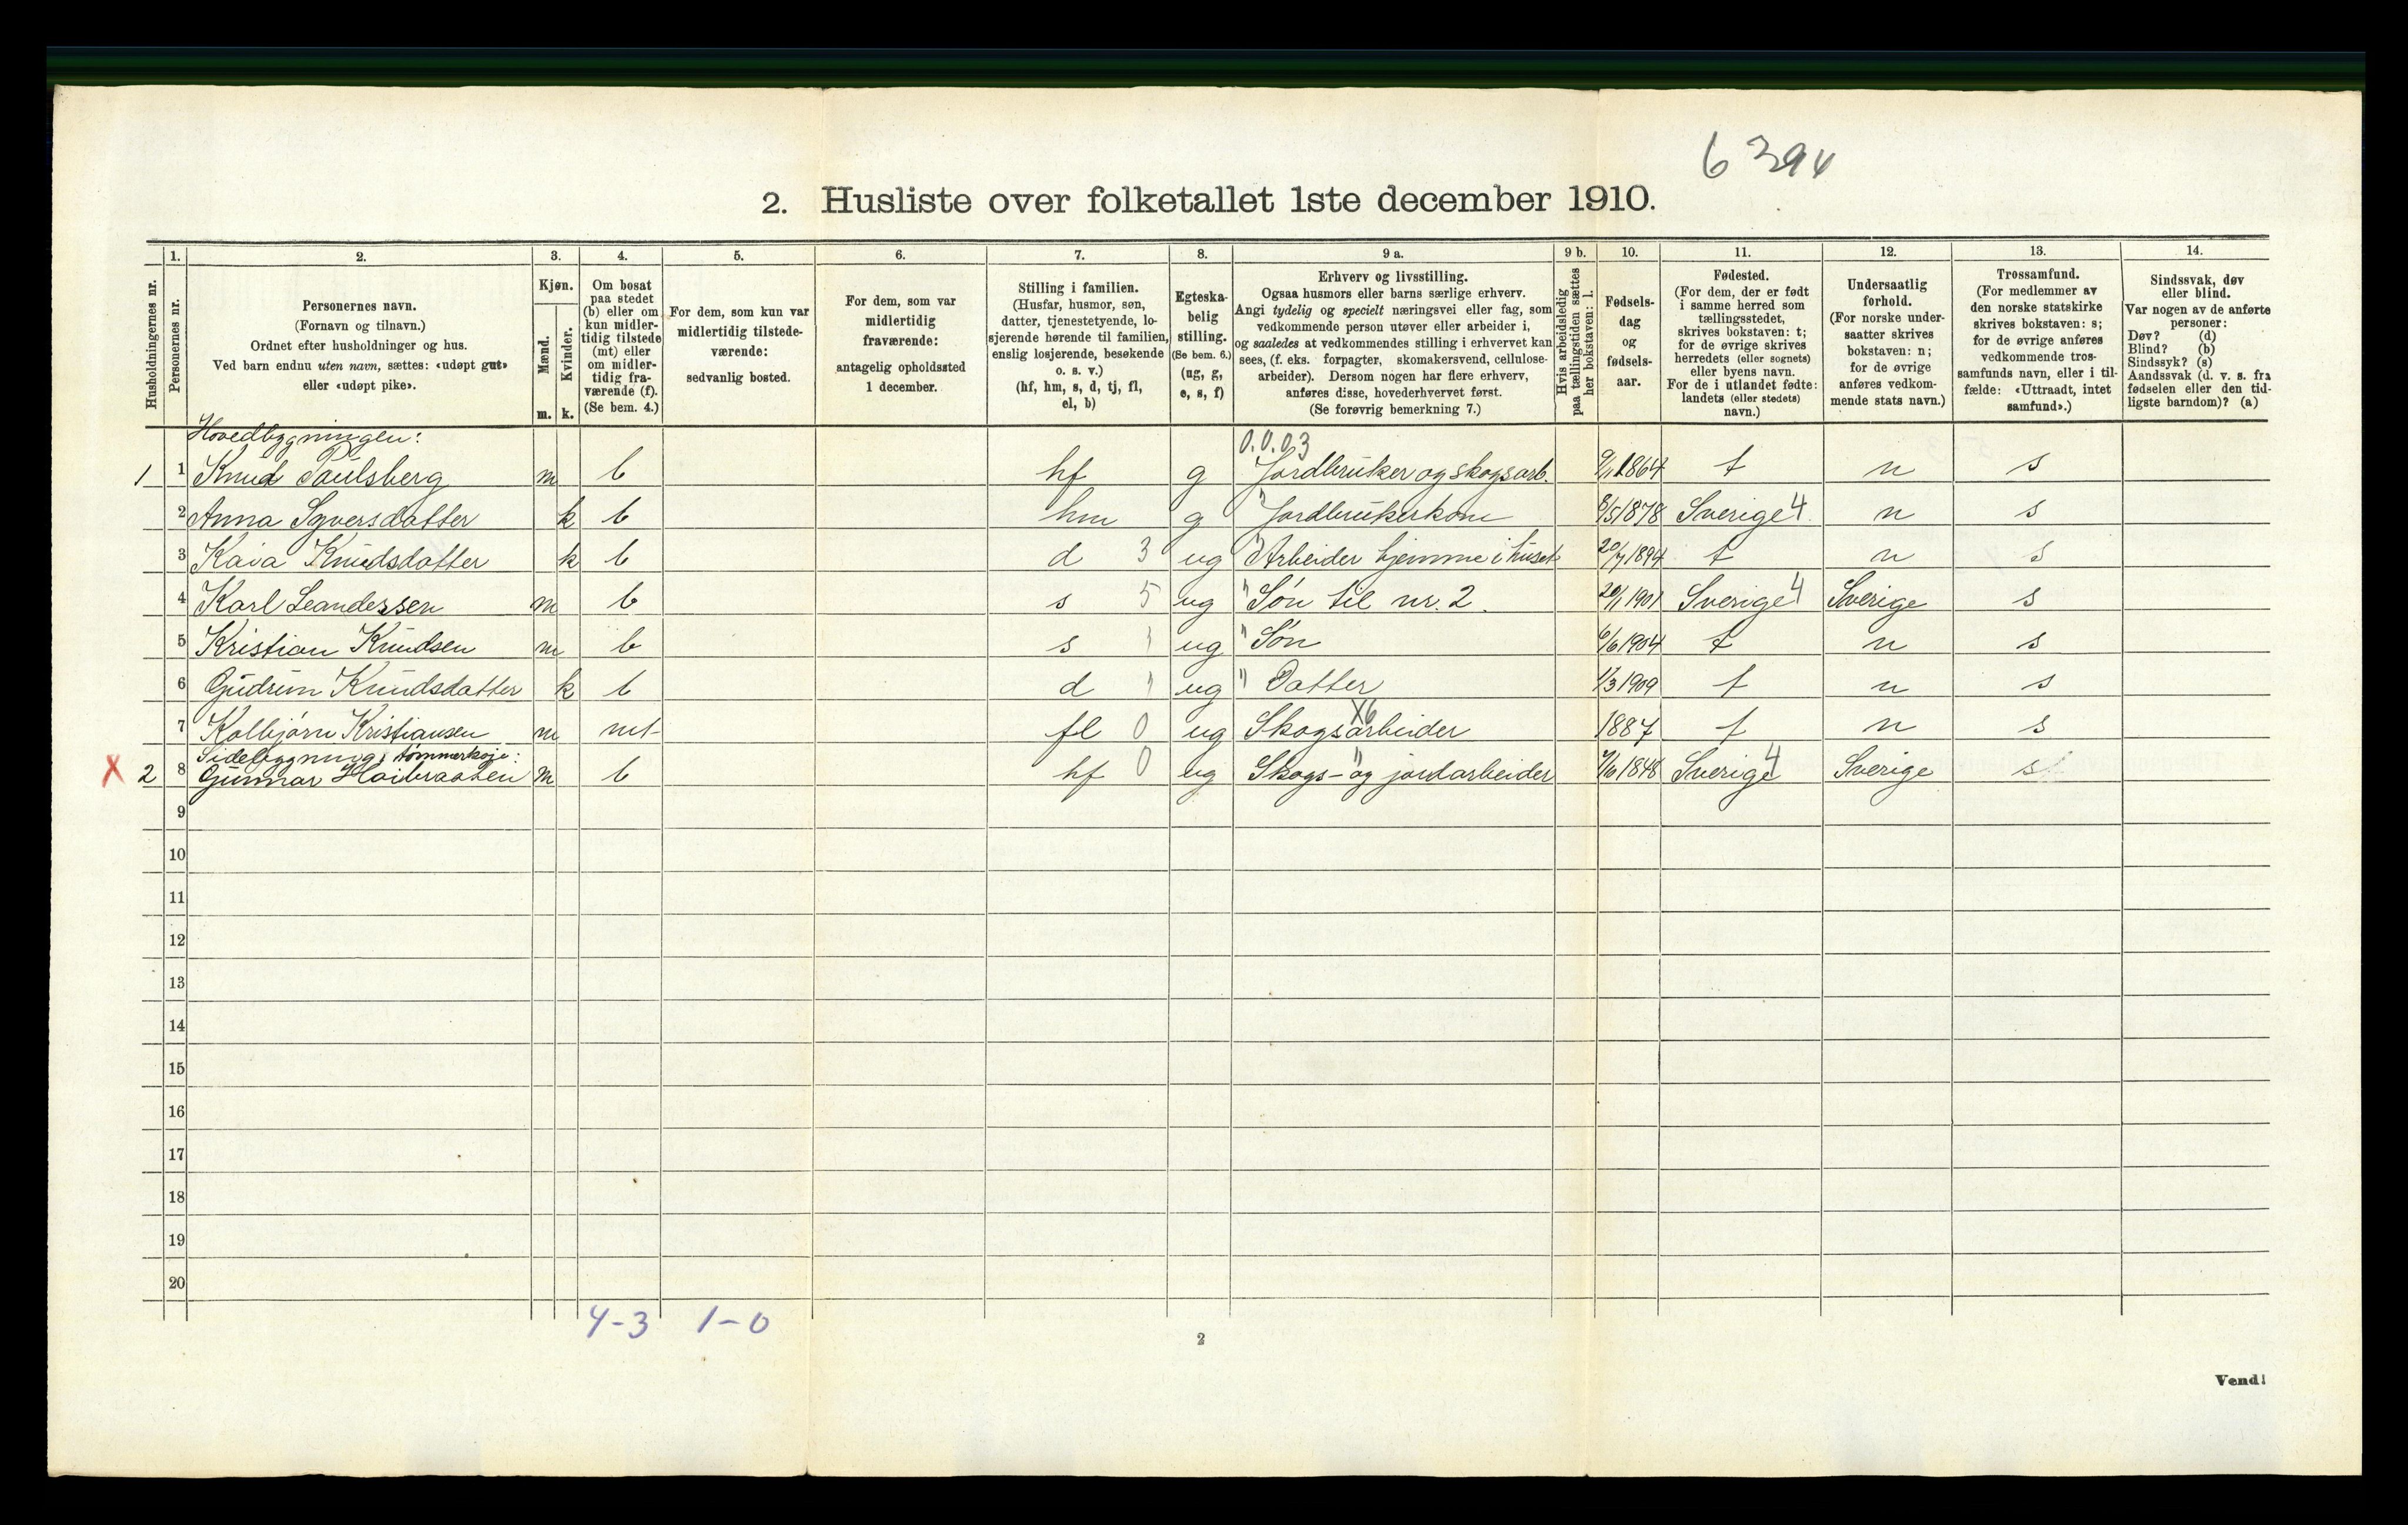 6 394
2. Husliste over folketallet 1ste december 1910.
1. 2. 3. 4. 5. 6. 7. 8. 9 a. 9 b. 10. 11. 12. 13. 14.
Husholdningernes nr.
Personernes nr.
Personernes navn.
(Fornavn og tilnavn.)
Ordnet efter husholdninger og hus.
Ved barn endnu uten navn, sættes: «udøpt gut»
eller «udøpt pike».
Kjøn.
Mænd.
Kvinder.
m. k.
Om bosat
paa stedet
(b) eller om
kun midler-
tidig tilstede
(mt) eller
om midler-
tidig fra-
værende (f).
(Se bem. 4.)
For dem, som kun var
midlertidig tilstede-
værende:
sedvanlig bosted.
For dem, som var
midlertidig
fraværende:
antagelig opholdssted
1 december.
Stilling i familien.
(Husfar, husmor, søn,
datter, tjenestetyende, lo-
sjerende hørende til familien,
enslig losjerende, besøkende
o. s. v.)
(hf, hm, s, d, tj, fl,
el, b)
Egteska-
belig
stilling.
(Se bem. 6.)
(ug, g,
e, s, f)
Erhverv og livsstilling.
Ogsaa husmors eller barns særlige erhverv.
Angi tydelig og specielt næringsvei eller fag, som
vedkommende person utøver eller arbeider i,
og saaledes at vedkommendes stilling i erhvervet kan
sees, (f. eks. forpagter, skomakersvend, cellulose-
arbeider). Dersom nogen har flere erhverv,
anføres disse, hovederhvervet først.
(Se forøvrig bemerkning 7.)
Hvis arbeidsledig
paa tællingstiden sættes
her bokstaven: l.
Fødsels-
dag
og
fødsels-
aar.
Fødested.
(For dem, der er født
i samme herred som
tællingsstedet,
skrives bokstaven: t;
for de øvrige skrives
herredets (eller sognets)
eller byens navn.
For de i utlandet fødte:
landets (eller stedets)
navn.)
Undersaatlig
forhold.
(For norske under-
saatter skrives
bokstaven: n;
for de øvrige
anføres vedkom-
mende stats navn.)
Trossamfund.
(For medlemmer av
den norske statskirke
skrives bokstaven: s;
for de øvrige anføres
vedkommende tros-
samfunds navn, eller i til-
fælde: «Uttraadt, intet
samfund».)
Sindssvak, døv
eller blind.
Var nogen av de anførte
personer:
Døv? (d)
Blind? (b)
Sindssyk? (s)
Aandssvak (d. v. s. fra
fødselen eller den tid-
ligste barndom)? (a)
Hovedbygningen: 0.0.03
1 1 Knud Paulsberg m b hf g Jordbruker og skogsarb. 9/11 1864 t n s
2 Anna Syversdatter k b hm g " Jordbrukerkone 8/5 1878 Sverige 4 n s
3 Kaia Knudsdatter k b d 3 ug " Arbeider hjemme i huset 20/7 1894 t n s
4 Karl Leanderssen m b s 5 ug " Søn til nr. 2. 20/1 1901 Sverige 4 Sverige s
5 Kristian Knudsen m b s " ug " Søn 6/6 1904 t n s
6 Gudrun Knudsdatter k b d " ug " Datter 1/3 1909 t n s
7 Kolbjørn Kristiansen m mt fl 0 ug Skogsarbeider X6 1887 t n s
Sidebygning, tømmerkoje:
X 2 8 Gunnar Hoibraaten m b hf 0 ug Skogs- og jordarbeider " 7/6 1848 Sverige 4 Sverige s
9
10
11
12
13
14
15
16
17
18
19
20
4-3 1-0
2
Vend!